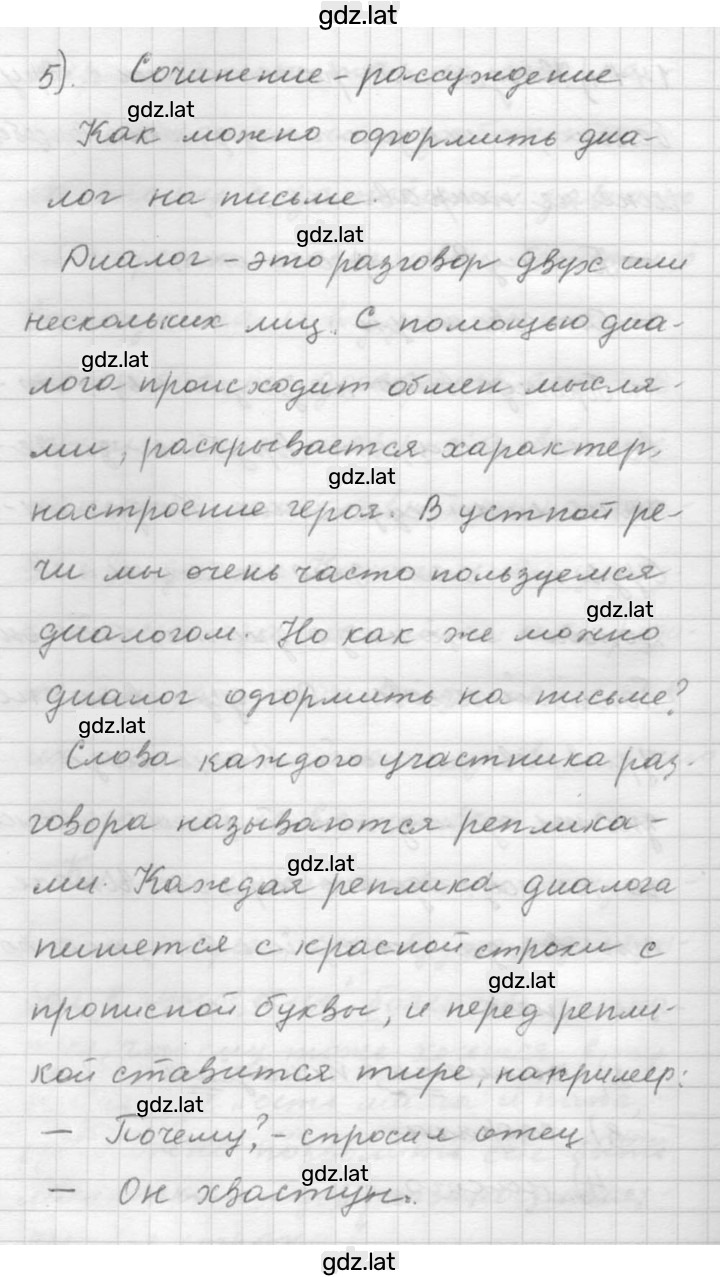 gdz.lat
5). Сочинение - рассуждение
gdz.lat
Как можно оформить диа-
лог на письме.
gdz.lat
Диалог - это разговор двух или
нескольких лиц. С помощью диа-
gdz.lat
лога происходит обмен мысля-
ми, раскрывается характер,
gdz.lat
настроение героя. В устной ре-
чи мы очень часто пользуемся
gdz.lat
диалогом. Но как же можно
диалог оформить на письме?
gdz.lat
Слова каждого участника раз-
говора называются реплика-
gdz.lat
ми. Каждая реплика диалога
пишется с красной строки с
gdz.lat
прописной буквы, и перед репли-
кой ставится тире, например:
gdz.lat
— Почему? - спросил отец
gdz.lat
— Он хвастун.
gdz.lat